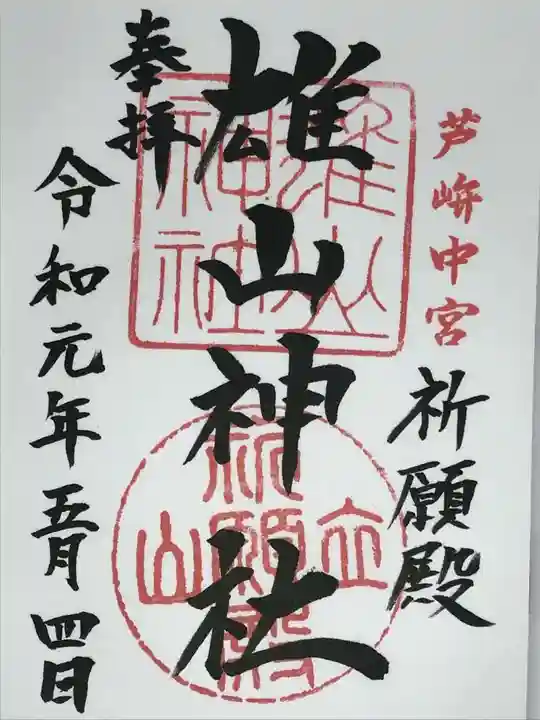 芦峅中宮
祈願殿
奉拝
雄山神社
雄山神社
立山
祈願殿
令和元年五月四日